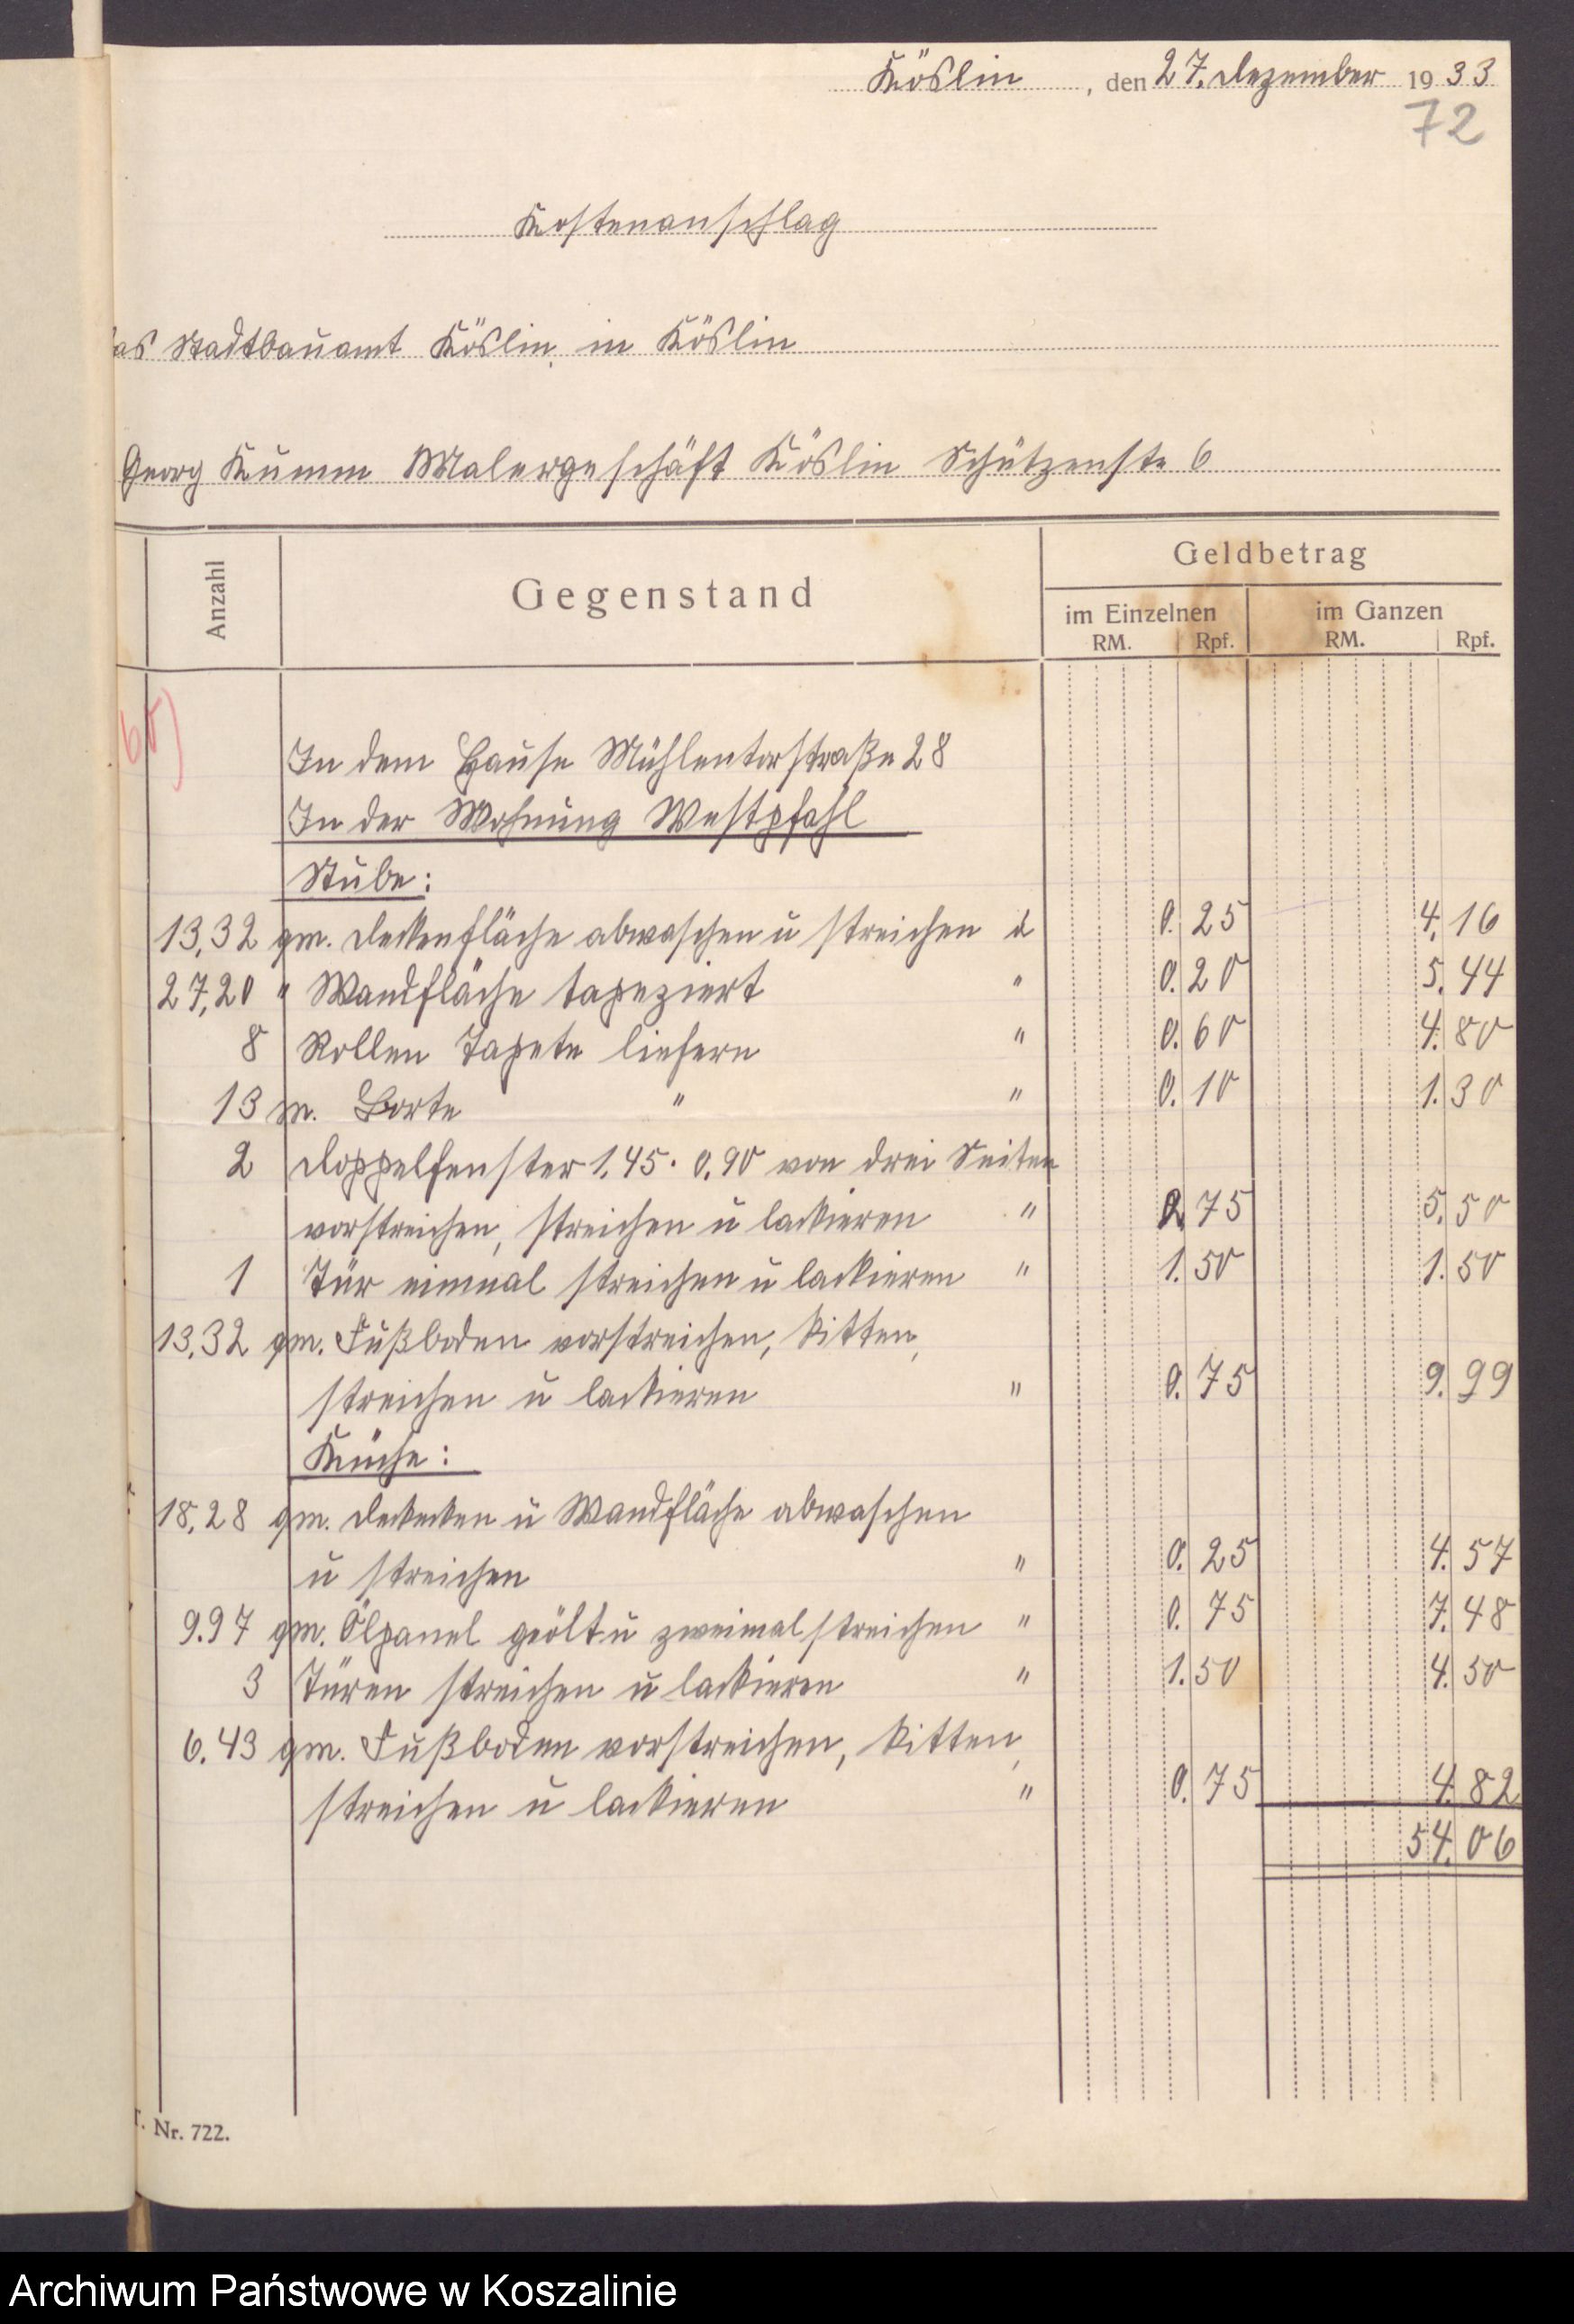 Köslin, den 27. Dezember 1933
72
Kostenanschlag
das Stadtbauamt Köslin in Köslin
Georg Kumm Malergeschäft Köslin Schützenstr 6
Anzahl Gegenstand Geldbetrag
im Einzelnen im Ganzen
RM. Rpf. RM. Rpf.
In dem Hause Mühlentorstraße 28
In der Wohnung Westpfahl
Stube:
13,32 qm. Deckenfläche abwaschen u streichen à 0.25 4.16
27,20 " Wandfläche tapeziert " 0.20 5.44
8 Rollen Tapete liefern " 0.60 4.80
13 m. Borte " " 0.10 1.30
2 Doppelfenster 1.45 · 0.90 von drei Seiten
vorstreichen, streichen u lackieren " 2.75 5.50
1 Tür einmal streichen u lackieren " 1.50 1.50
13.32 qm. Fußboden vorstreichen, kitten,
streichen u lackieren " 0.75 9.99
Küche:
18,28 qm. Deckeken u Wandfläche abwaschen
u streichen " 0.25 4.57
9.97 qm. Ölpanel geölt u zweimal streichen " 0.75 7.48
3 Türen streichen u lackieren " 1.50 4.50
6.43 qm. Fußboden vorstreichen, kitten,
streichen u lackieren " 0.75 4.82
54.06
Nr. 722.
Archiwum Państwowe w Koszalinie